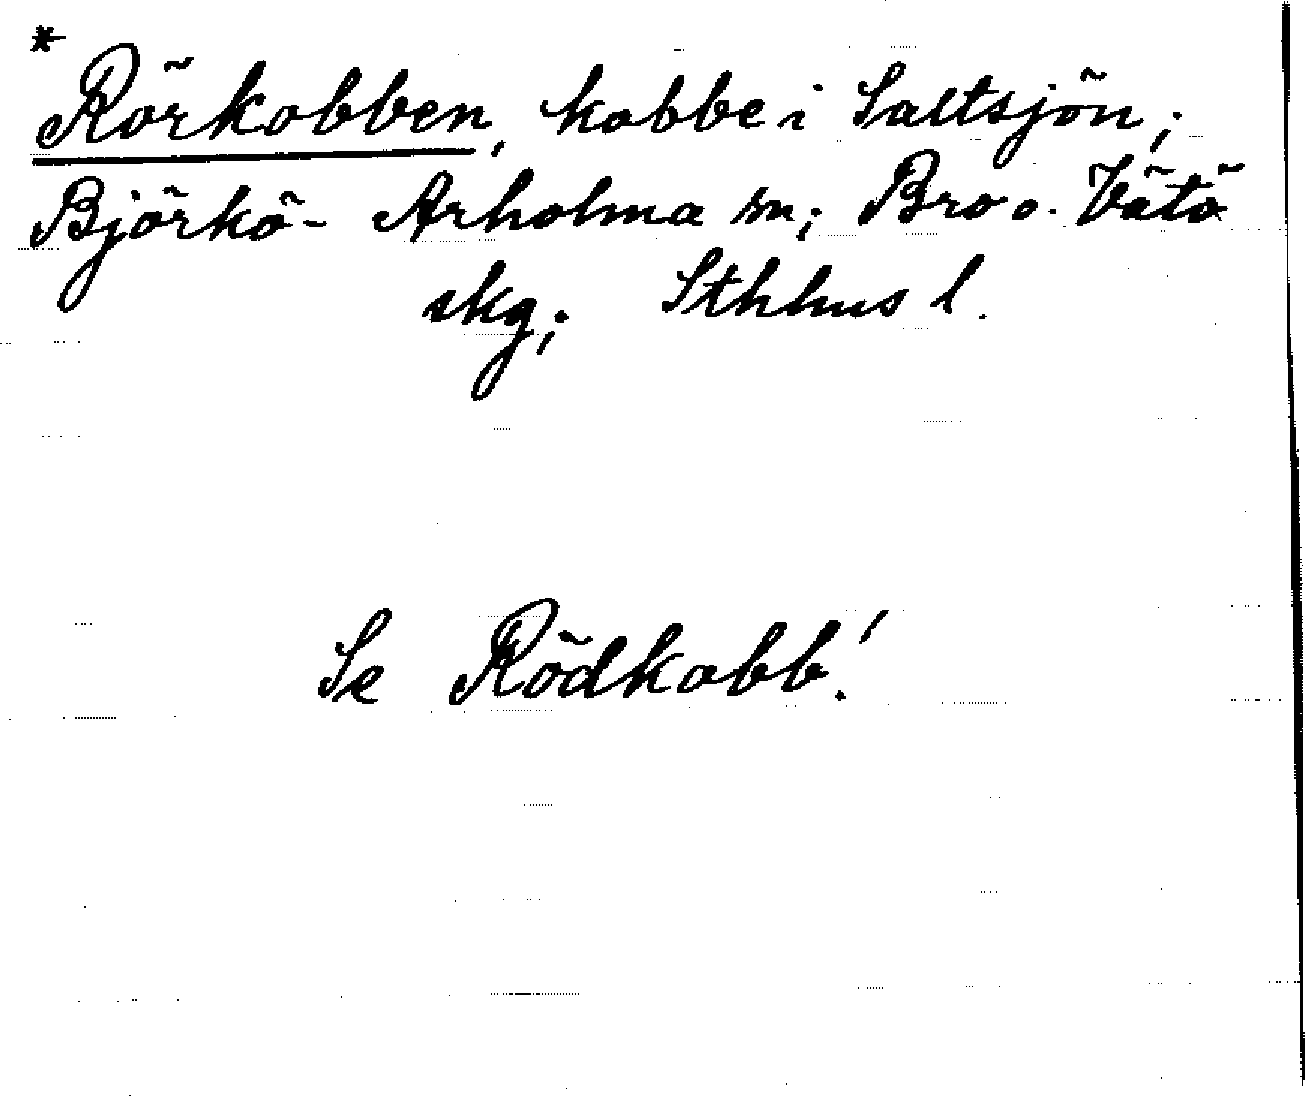 *
Rörkobben, kobbe i Saltsjön;
Björkö- Arholma sn; Bro o. Vätö
skg; Sthlms l.
Se Rödkobb!